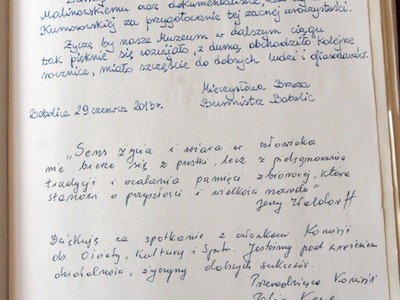 Malinowskiemu oraz dokumentalistce,
Kumorowskiej za przygotowanie tej zacnej uroczystości.
Życzę by nasze Muzeum w dalszym ciągu
tak pięknie się rozwijało, z dumą obchodziło kolejne
rocznice, miało szczęście do dobrych ludzi i ofiarodawców.
Mieczysława Brzoza
Burmistrz Bobolic
Bobolice 29 czerwca 2013r.
„Sens życia i wiara w człowieka
nie bierze się z pustki, lecz z pielęgnowania
tradycji i ocalania pamięci zbiorowej, która
stanowi o przyszłości i wielkości narodu"
Jerzy Waldorff
Dziękuję za spotkanie z członkami Komisji
ds. Oświaty, Kultury i Sportu. Jesteśmy pod wrażeniem
działalności, życzymy dalszych sukcesów.
Przewodnicząca Komisji